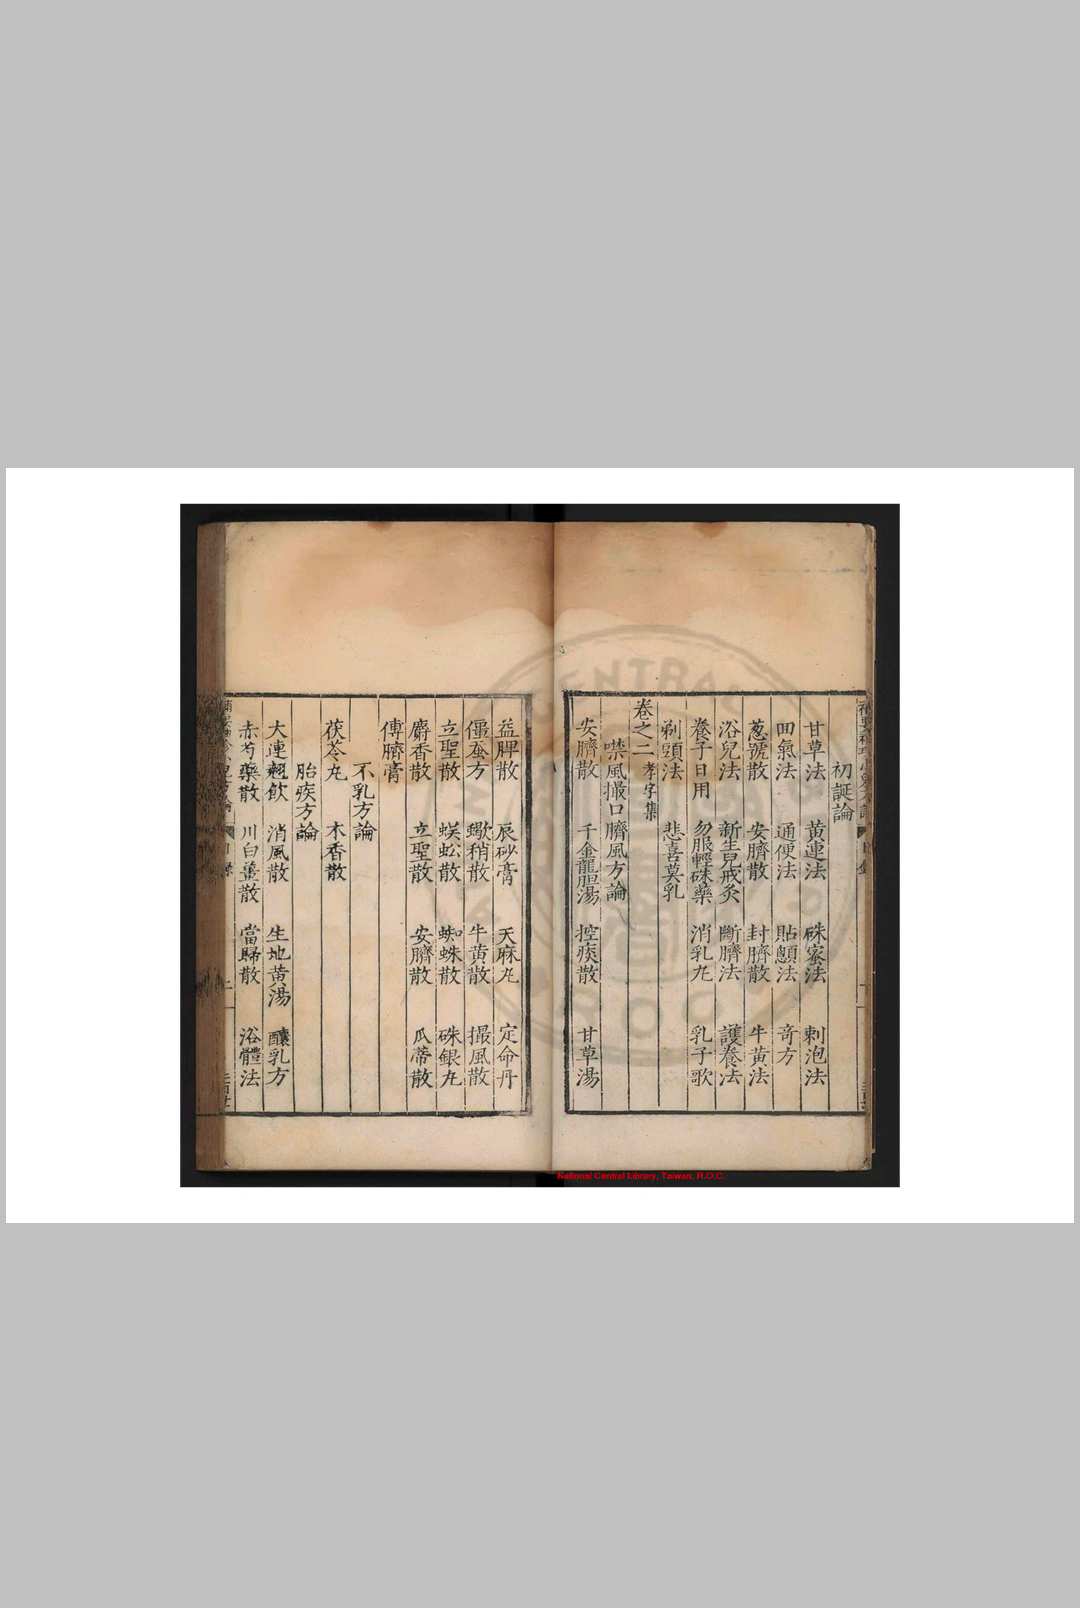 初誕論
甘草法 黃連法 硃蜜法 剌泡法
回氣法 通便法 貼顖法 竒方
葱號散 安臍散 封臍散 牛黃法
浴兒法 新生兒戒灸 斷臍法 護養法
養子日用 勿服輕硃藥 消乳丸 乳子歌
剃頭法 悲喜莫乳
卷之二 孝字集
噤風撮口臍風方論
安臍散 千金龍胆湯 控痰散 甘草湯
益脾散 辰砂膏 天麻丸 定命丹
僵蚕方 蠍稍散 牛黃散 撮風散
立聖散 蜈蚣散 蜘蛛散 硃銀丸
麝香散 立聖散 安臍散 瓜蒂散
傅臍膏
不乳方論
茯苓丸 木香散
胎疾方論
大連翹飲 消風散 生地黃湯 釀乳方
赤芍藥散 川白薑散 當歸散 浴體法
National Central Library, Taiwan, R.O.C.